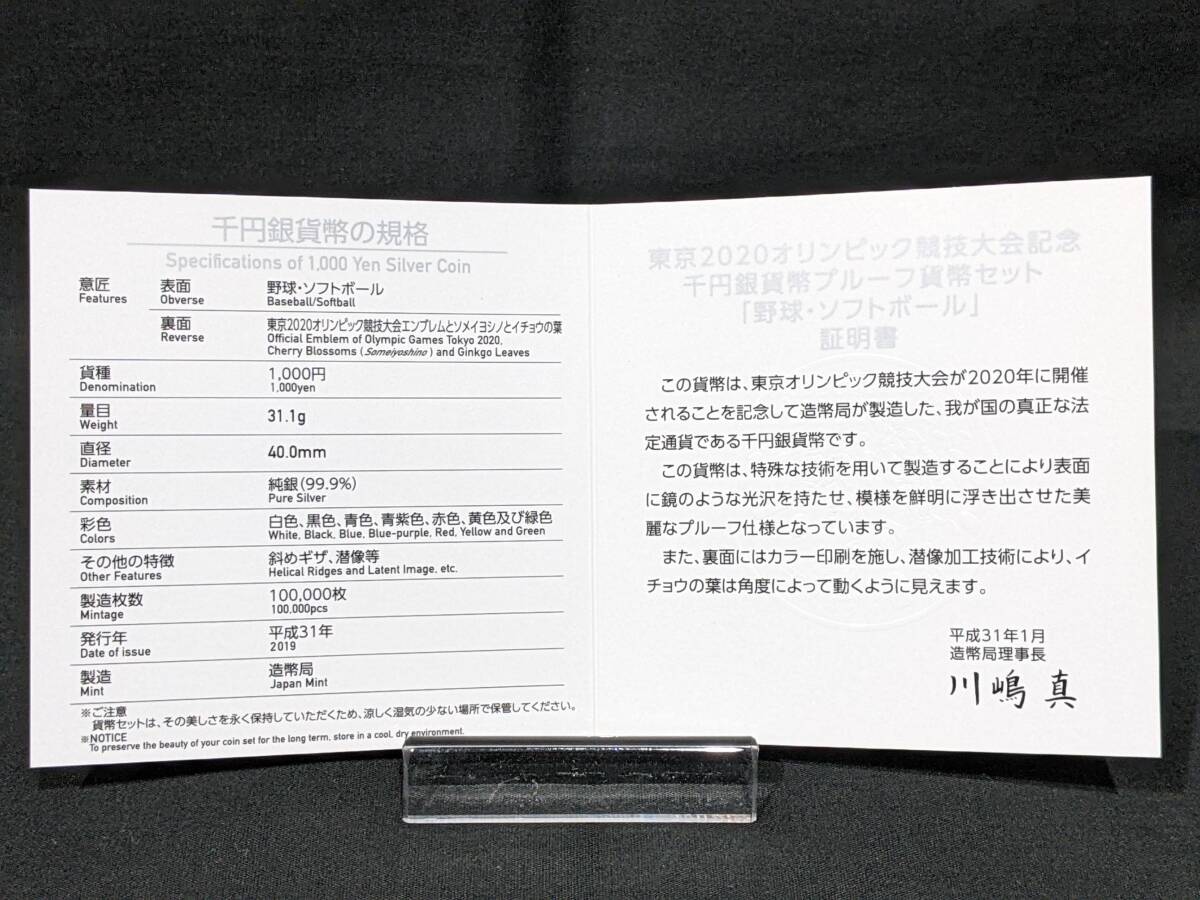 千円銀貨幣の規格
Specifications of 1,000 Yen Silver Coin
意匠 表面 野球・ソフトボール
Features Obverse Baseball/Softball
裏面 東京2020オリンピック競技大会エンブレムとソメイヨシノとイチョウの葉
Reverse Official Emblem of Olympic Games Tokyo 2020,
Cherry Blossoms (Someiyoshino) and Ginkgo Leaves
貨種 1,000円
Denomination 1,000yen
量目 31.1g
Weight
直径 40.0mm
Diameter
素材 純銀(99.9%)
Composition Pure Silver
彩色 白色、黒色、青色、青紫色、赤色、黄色及び緑色
Colors White, Black, Blue, Blue-purple, Red, Yellow and Green
その他の特徴 斜めギザ、潜像等
Other Features Helical Ridges and Latent Image, etc.
製造枚数 100,000枚
Mintage 100,000pcs
発行年 平成31年
Date of issue 2019
製造 造幣局
Mint Japan Mint
※ご注意
貨幣セットは、その美しさを永く保持していただくため、涼しく湿気の少ない場所で保管してください。
※NOTICE
To preserve the beauty of your coin set for the long term, store in a cool, dry environment.
東京2020オリンピック競技大会記念
千円銀貨幣プルーフ貨幣セット
「野球・ソフトボール」
証明書
この貨幣は、東京オリンピック競技大会が2020年に開催
されることを記念して造幣局が製造した、我が国の真正な法
定通貨である千円銀貨幣です。
この貨幣は、特殊な技術を用いて製造することにより表面
に鏡のような光沢を持たせ、模様を鮮明に浮き出させた美
麗なプルーフ仕様となっています。
また、裏面にはカラー印刷を施し、潜像加工技術により、イ
チョウの葉は角度によって動くように見えます。
平成31年1月
造幣局理事長
川嶋 真